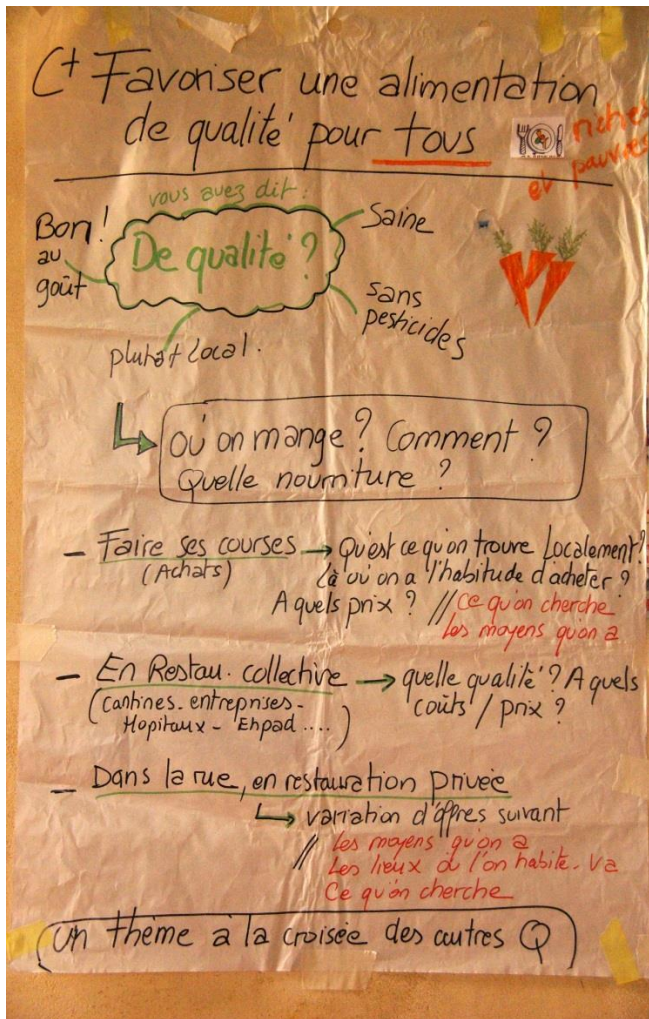 C+ Favoriser une alimentation
de qualité pour tous
riches
et pauvres
vous avez dit :
De qualité ?
Bon !
au
goût
Saine
sans
pesticides
plutôt local.
où on mange ? Comment ?
Quelle nourriture ?
- Faire ses courses → Qu'est ce qu'on trouve localement ?
(Achats) Là où on a l'habitude d'acheter ?
A quels prix ? // Ce qu'on cherche
Les moyens qu'on a
- En Restau. collective → quelle qualité ? A quels
(Cantines - entreprises - coûts / prix ?
Hopitaux - Ehpad ....)
- Dans la rue, en restauration privée
→ variation d'offres suivant
// Les moyens qu'on a
Les lieux où l'on habite - va
Ce qu'on cherche
Un thème à la croisée des autres Q